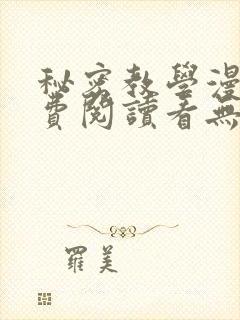 秘密教學漫
費閱讀看無
羅美